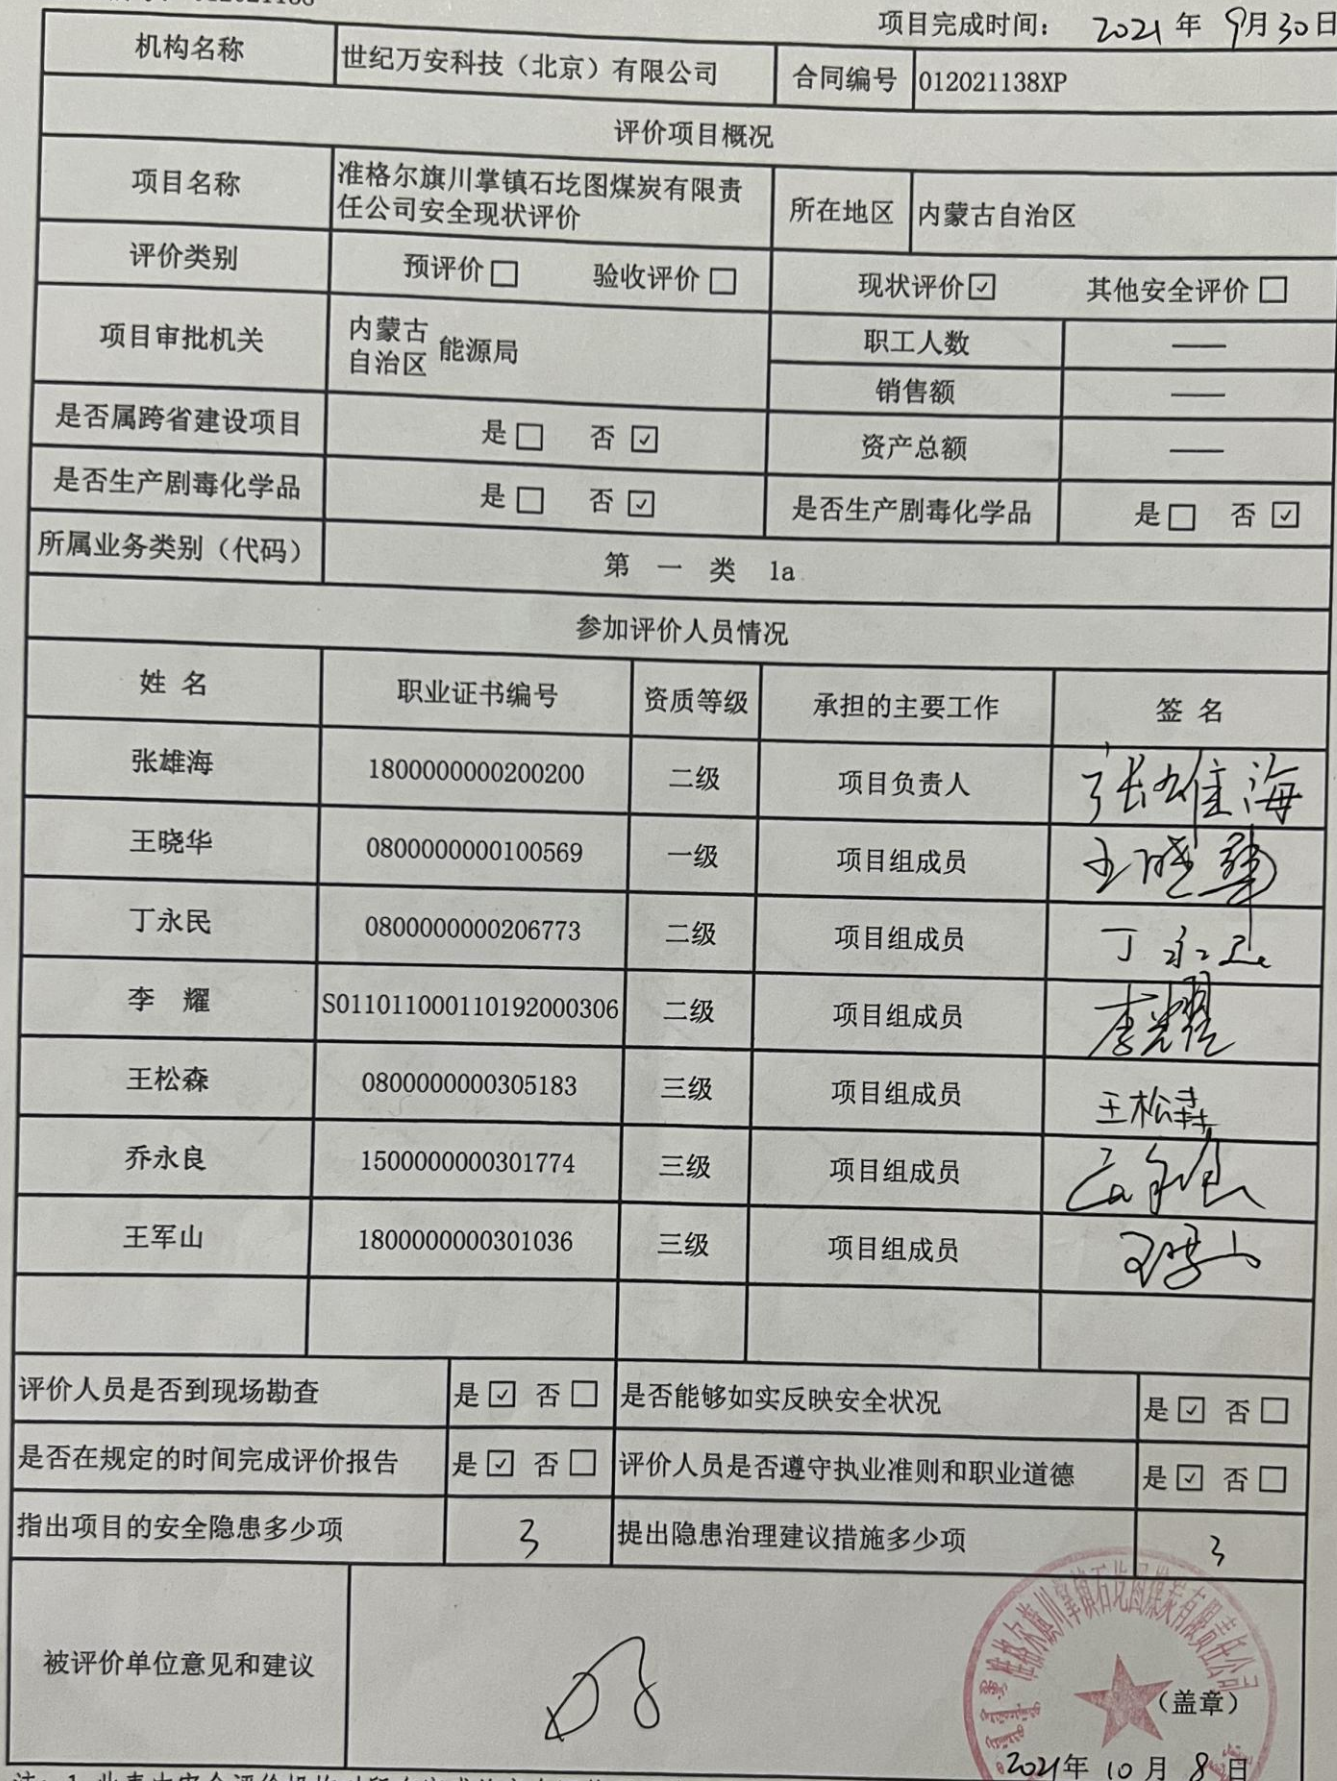 项目完成时间： 2021年 9月30日
机构名称 世纪万安科技（北京）有限公司 合同编号 012021138XP
评价项目概况
项目名称 准格尔旗川掌镇石圪图煤炭有限责
任公司安全现状评价 所在地区 内蒙古自治区
评价类别 预评价□ 验收评价□ 现状评价☑ 其他安全评价□
项目审批机关 内蒙古
自治区 能源局
职工人数 ——
销售额 ——
是否属跨省建设项目 是□ 否☑ 资产总额 ——
是否生产剧毒化学品 是□ 否☑ 是否生产剧毒化学品 是□ 否☑
所属业务类别（代码） 第 一 类 1a
参加评价人员情况
姓 名 职业证书编号 资质等级 承担的主要工作 签 名
张雄海 1800000000200200 二级 项目负责人 张雄海
王晓华 0800000000100569 一级 项目组成员 王晓华
丁永民 0800000000206773 二级 项目组成员 丁永民
李 耀 S011011000110192000306 二级 项目组成员 李耀
王松森 0800000000305183 三级 项目组成员 王松森
乔永良 1500000000301774 三级 项目组成员
王军山 1800000000301036 三级 项目组成员
评价人员是否到现场勘查 是☑ 否□ 是否能够如实反映安全状况 是☑ 否□
是否在规定的时间完成评价报告 是☑ 否□ 评价人员是否遵守执业准则和职业道德 是☑ 否□
指出项目的安全隐患多少项 3 提出隐患治理建议措施多少项 3
准格尔旗川掌镇石圪图煤炭有限责任公司
被评价单位意见和建议
（盖章）
2021年 10 月 8 日